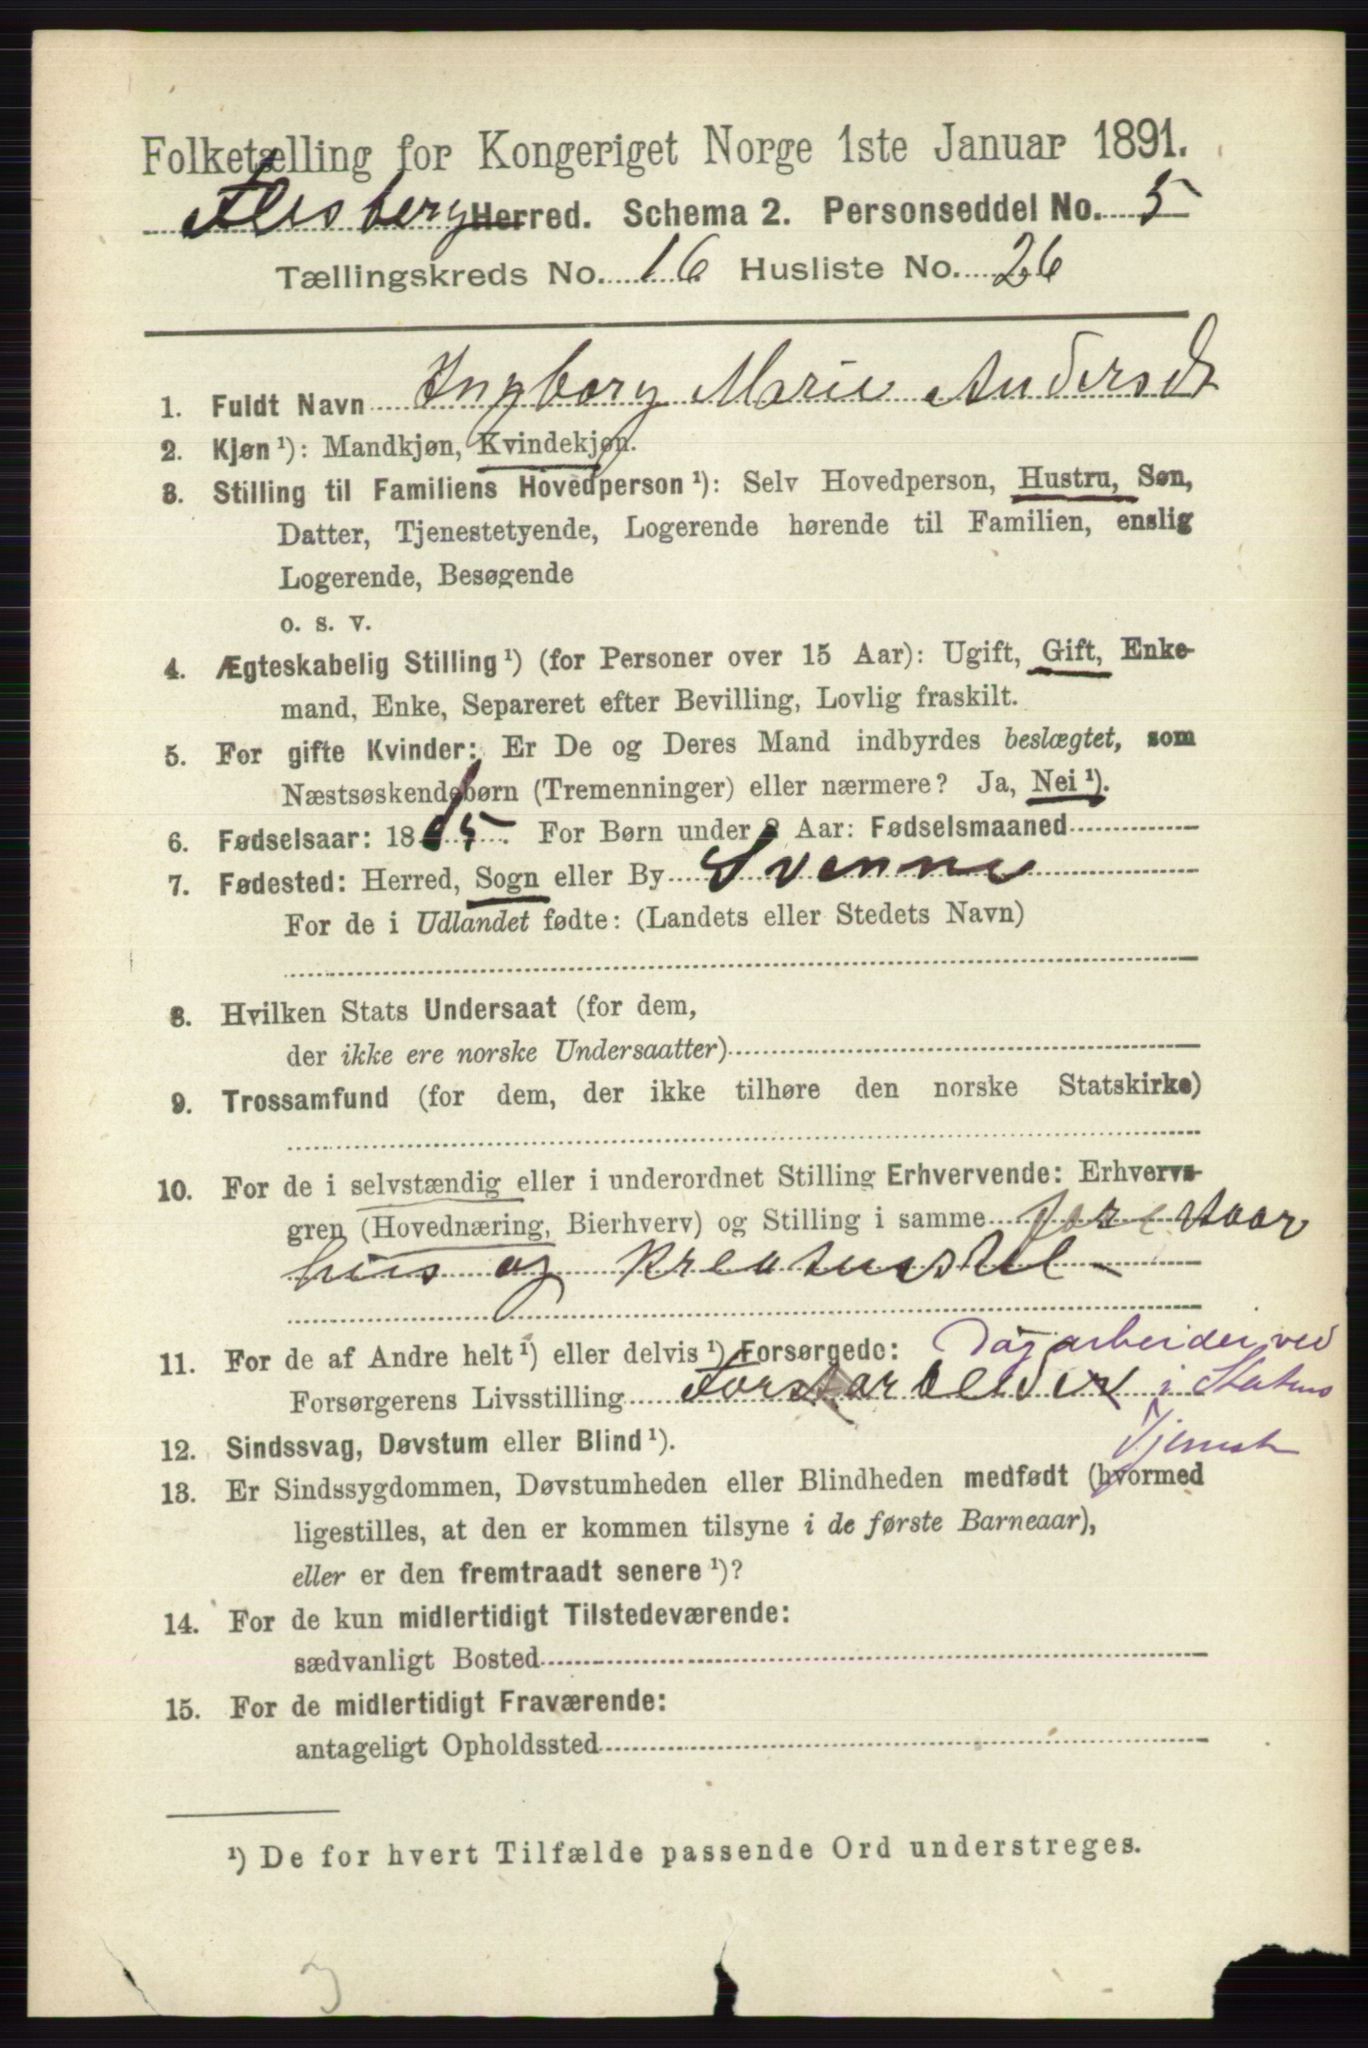 Folketælling for Kongeriget Norge 1ste Januar 1891.
Flesberg Herred. Schema 2. Personseddel No. 5
Tællingskreds No. 16 Husliste No. 26
1. Fuldt Navn Ingborg Marie Andersdt
2. Kjøn ¹): Mandkjøn, Kvindekjøn.
3. Stilling til Familiens Hovedperson ¹): Selv Hovedperson, Hustru, Søn,
Datter, Tjenestetyende, Logerende hørende til Familien, enslig
Logerende, Besøgende
o. s. v.
4. Ægteskabelig Stilling ¹) (for Personer over 15 Aar): Ugift, Gift, Enke-
mand, Enke, Separeret efter Bevilling, Lovlig fraskilt.
5. For gifte Kvinder: Er De og Deres Mand indbyrdes beslægtet, som
Næstsøskendebørn (Tremenninger) eller nærmere? Ja, Nei ¹).
6. Fødselsaar: 18 5. For Børn under 2 Aar: Fødselsmaaned
7. Fødested: Herred, Sogn eller By Svenne
For de i Udlandet fødte: (Landets eller Stedets Navn)
8. Hvilken Stats Undersaat (for dem,
der ikke ere norske Undersaatter)
9. Trossamfund (for dem, der ikke tilhøre den norske Statskirke)
10. For de i selvstændig eller i underordnet Stilling Erhvervende: Erhvervs-
gren (Hovednæring, Bierhverv) og Stilling i samme forestaar
hus og Kreaturstel -
11. For de af Andre helt ¹) eller delvis ¹) Forsørgede: Dagarbeider ved
Forsørgerens Livsstilling Forstarbeider i Statens
Tjeneste
12. Sindssvag, Døvstum eller Blind ¹).
13. Er Sindssygdommen, Døvstumheden eller Blindheden medfødt (hvormed
ligestilles, at den er kommen tilsyne i de første Barneaar),
eller er den fremtraadt senere ¹)?
14. For de kun midlertidigt Tilstedeværende:
sædvanligt Bosted
15. For de midlertidigt Fraværende:
antageligt Opholdssted
¹) De for hvert Tilfælde passende Ord understreges.
3